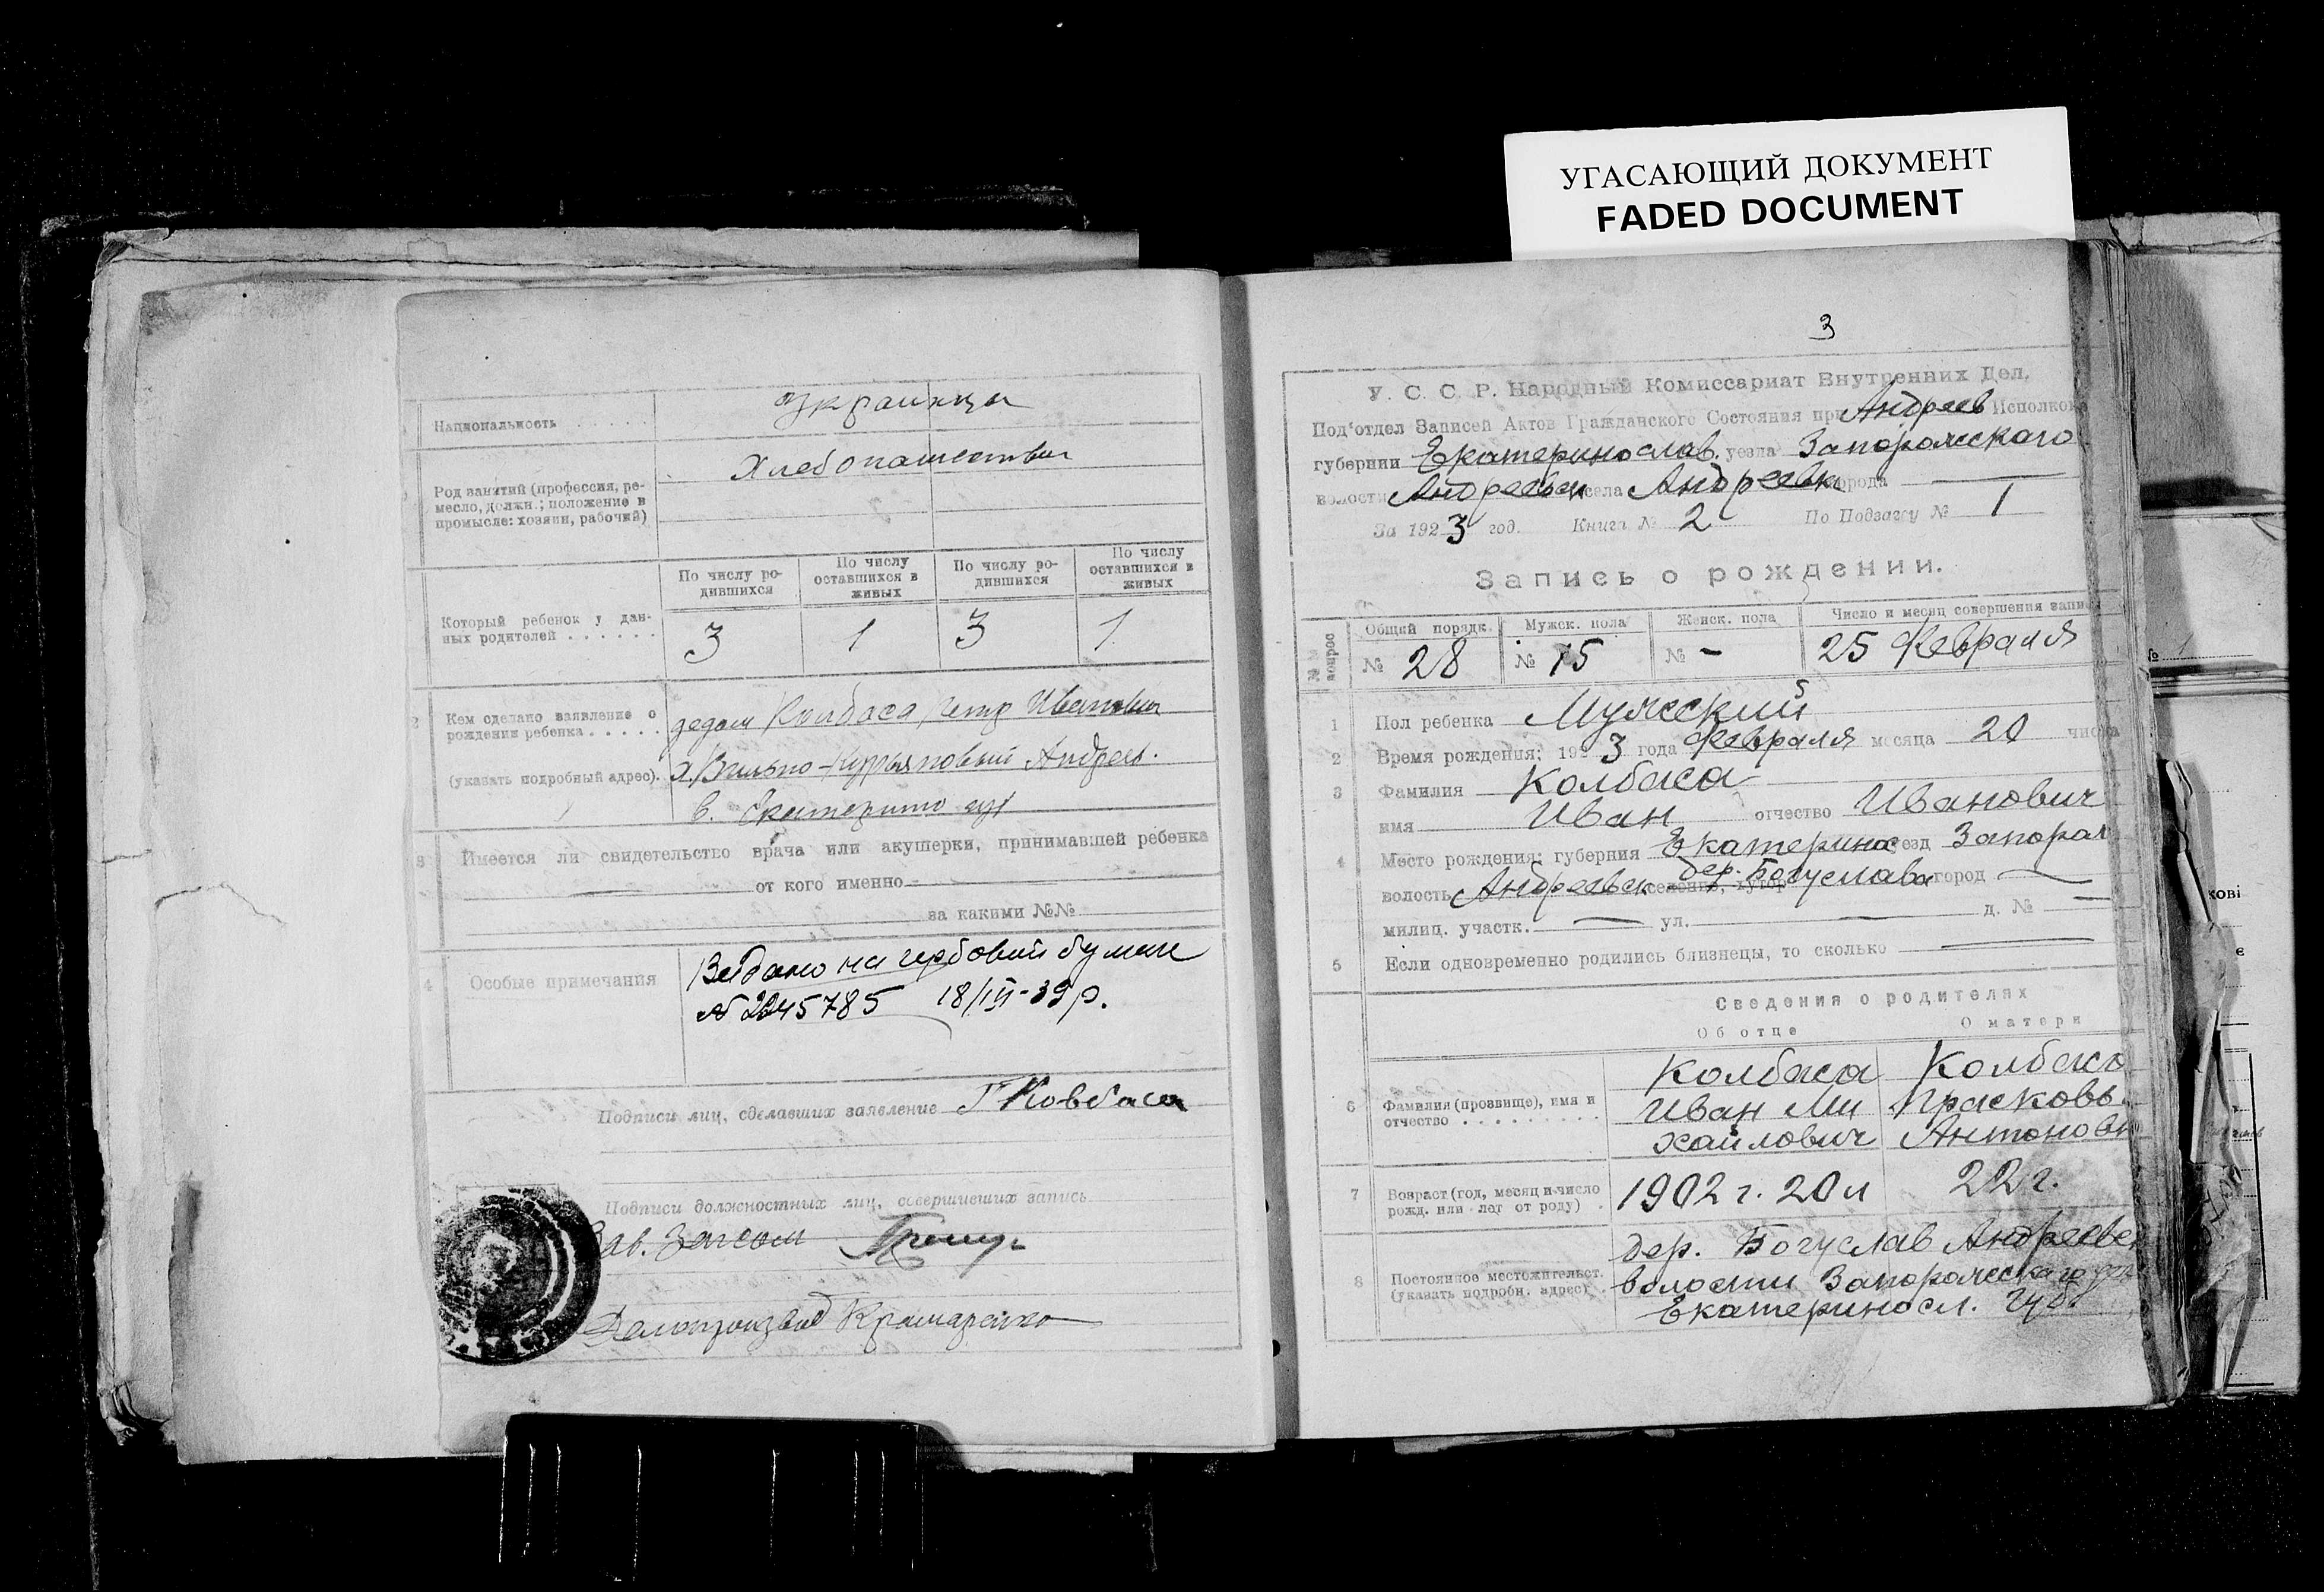 УГАСАЮЩИЙ ДОКУМЕНТ
FADED DOCUMENT
Национальность . . . . . . Украинцы
Род занятий (профессия, ре-
месло, должн.; положение в
промысле: хозяин, рабочий)
Хлебопашество
Который ребенок у дан-
ных родителей . . . . . .
По числу ро-
дившихся
По числу
оставшихся в
живых
По числу ро-
дившихся
По числу
оставшихся в
живых
3 1 3 1
2 Кем сделано заявление о
рождении ребенка . . . . .
(указать подробный адрес).
дедом Колбаса Петр Иванович
х. Вильно- Андреев.
в. Екатерино
3 Имеется ли свидетельство врача или акушерки, принимавшей ребенка
от кого именно
за какими №№
4 Особые примечания
Видано на гербовий бумаге
№ 2045785 18/III-39 р.
Подписи лиц, сделавших заявление П Ковбаса
Подписи должностных лиц, совершивших запись
Зав. Загсом
Делопроизвод Крамаренко
3
У. С. С. Р. Народный Комиссариат Внутренних Дел.
Под'отдел Записей Актов Гражданского Состояния при Андреев Исполком
губернии Екатеринослав. уезда Запорожского
волости Андреевск села Андреевк города —
За 1923 год. Книга № 2 По Подзагсу № 1
Запись о рождении.
№№ вопрос
Общий порядк. Мужск. пола Женск. пола Число и месяц совершения записи
№ 28 № 15 № - 25 февраля
1 Пол ребенка Мужеский
2 Время рождения: 1923 года февраля месяца 20 числа
3 Фамилия Колбаса
имя Иван отчество Иванович
4 Место рождения: губерния Екатеринос уезд Запорож
волость Андреевск селение, хутор дер. Богуслава город —
милиц. участк. — ул. — д. № —
5 Если одновременно родились близнецы, то сколько —
Сведения о родителях
Об отце О матери
6 Фамилия (прозвище), имя и
отчество . . . . . . . . .
Колбаса Колбаса
Иван Ми Прасковь
хайлович Антоновн
7 Возраст (год, месяц и число
рожд. или лет от роду) .
1902 г. 20 л 22 г.
8 Постоянное местожительст.
(указать подробн. адрес) .
дер. Богуслав Андреевск
волости Запорожского
Екатериносл. губ